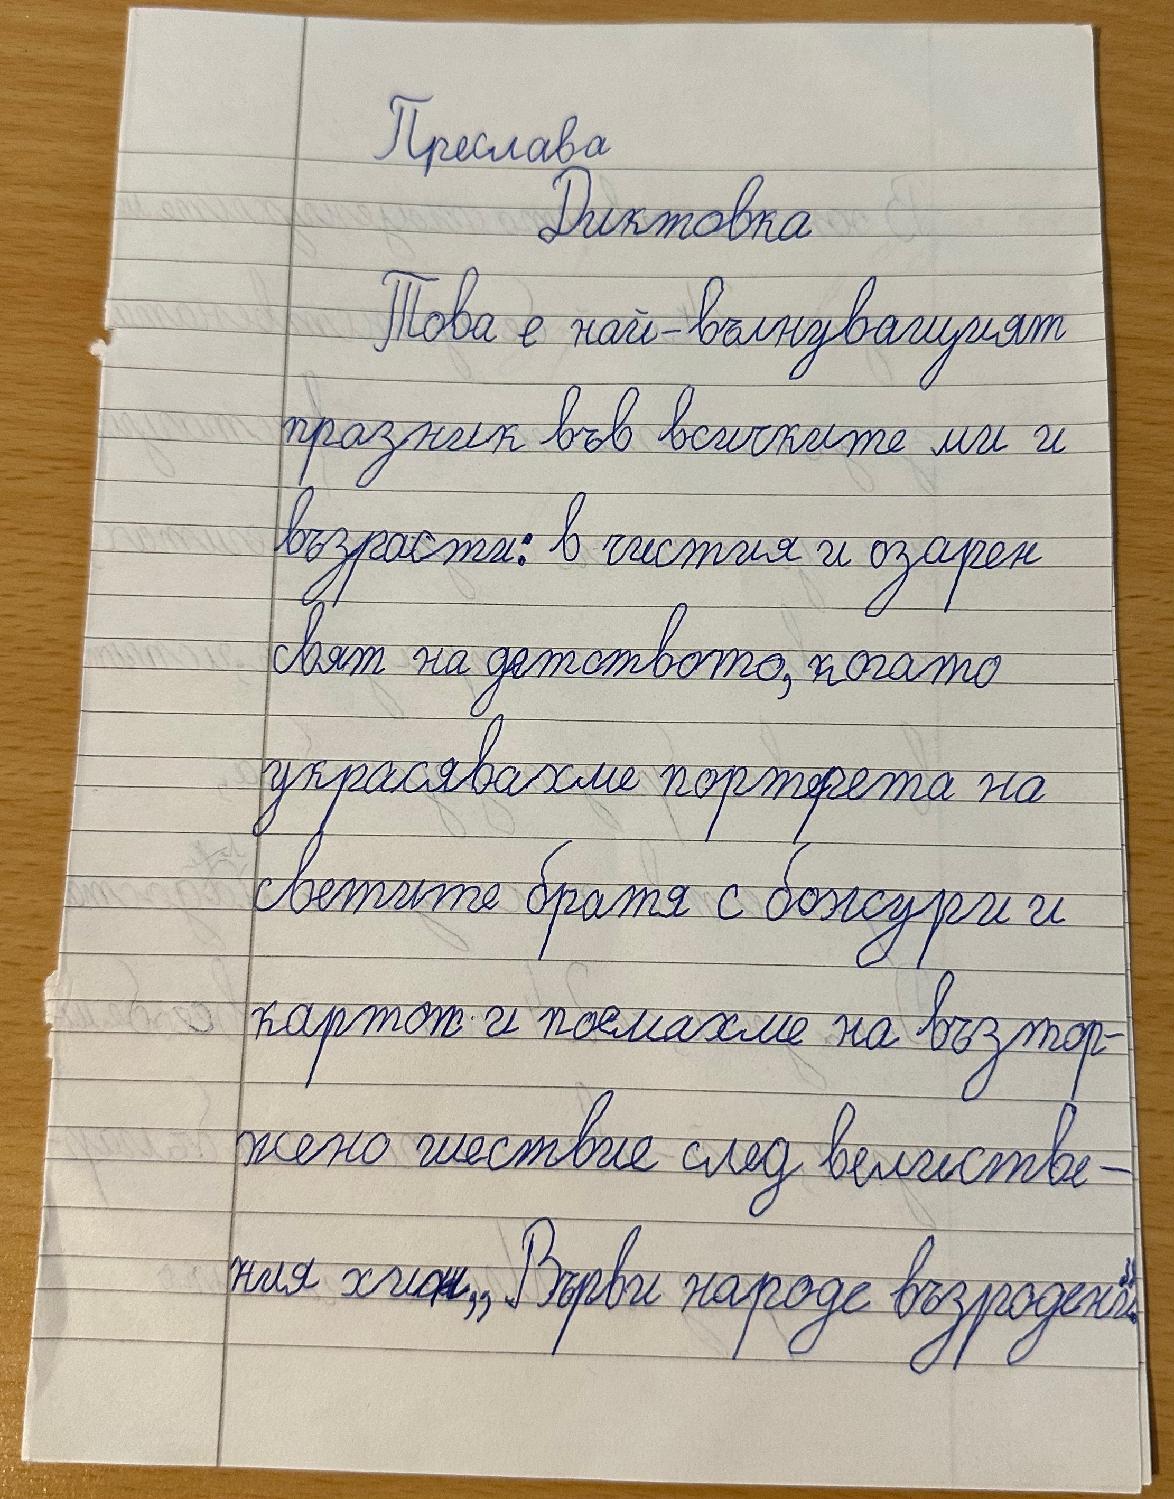 Преслава
Диктовка
Това е най-вълнуващият
празник във всичките ми и
възрасти: в чистия и озарен
свят на детството, когато
украсявахме портрета на
светите братя с божури и
картон и поемахме на възтор-
жено шествие след величестве-
ния химн „Върви народе възродени“.